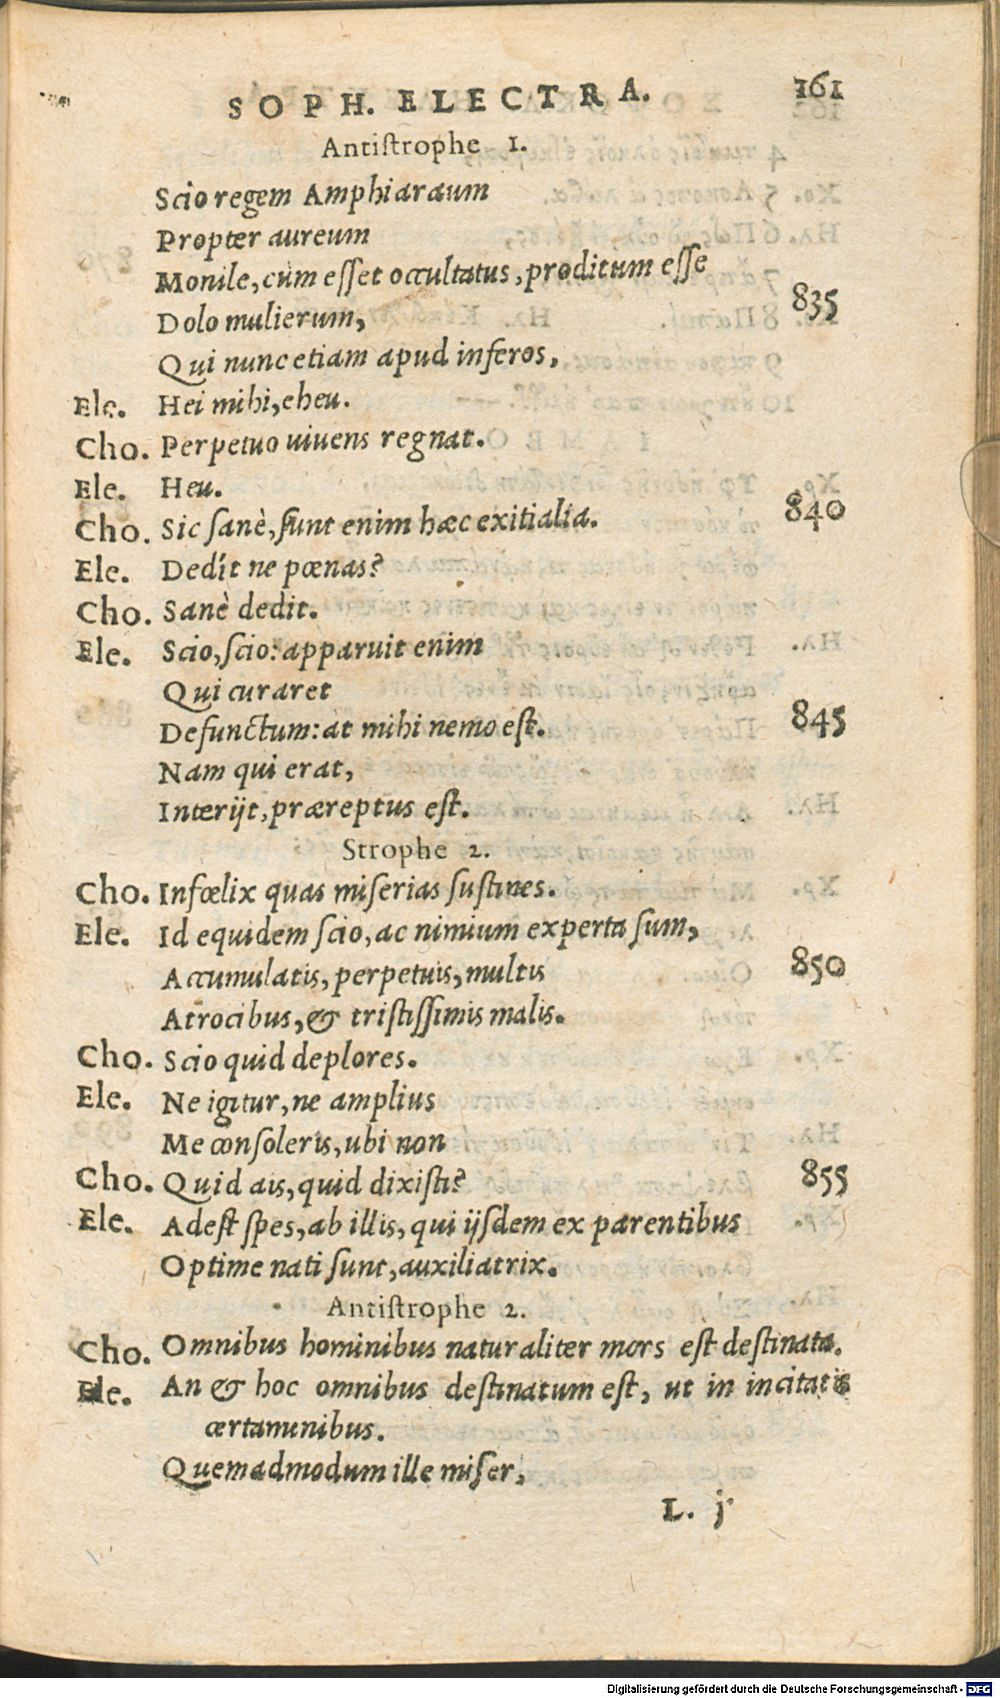 SOPH. ELECTRA. 161
Antistrophe 1.
Scio regem Amphiaraum
Propter aureum
Monile, cùm esset occultatus, proditum esse
Dolo mulierum, 835
Qui nunc etiam apud inferos,
Ele. Hei mihi, eheu.
Cho. Perpetuo uiuens regnat.
Ele. Heu.
Cho. Sic sanè, sunt enim hæc exitialia. 840
Ele. Dedit ne pœnas?
Cho. Sanè dedit.
Ele. Scio, scio: apparuit enim
Qui curaret
Defunctum: at mihi nemo est. 845
Nam qui erat,
Interijt, præreptus est.
Strophe 2.
Cho. Infœlix quas miserias sustines.
Ele. Id equidem scio, ac nimium experta sum,
Accumulatis, perpetuis, multis 850
Atrocibus, & tristissimis malis.
Cho. Scio quid deplores.
Ele. Ne igitur, ne amplius
Me consoleris, ubi non
Cho. Quid ais, quid dixisti? 855
Ele. Adest spes, ab illis, qui ijsdem ex parentibus
Optime nati sunt, auxiliatrix.
Antistrophe 2.
Cho. Omnibus hominibus naturaliter mors est destinata.
Ele. An & hoc omnibus destinatum est, ut in incitatis
certaminibus.
Quemadmodum ille miser,
L. j
Digitalisierung gefördert durch die Deutsche Forschungsgemeinschaft - DFG